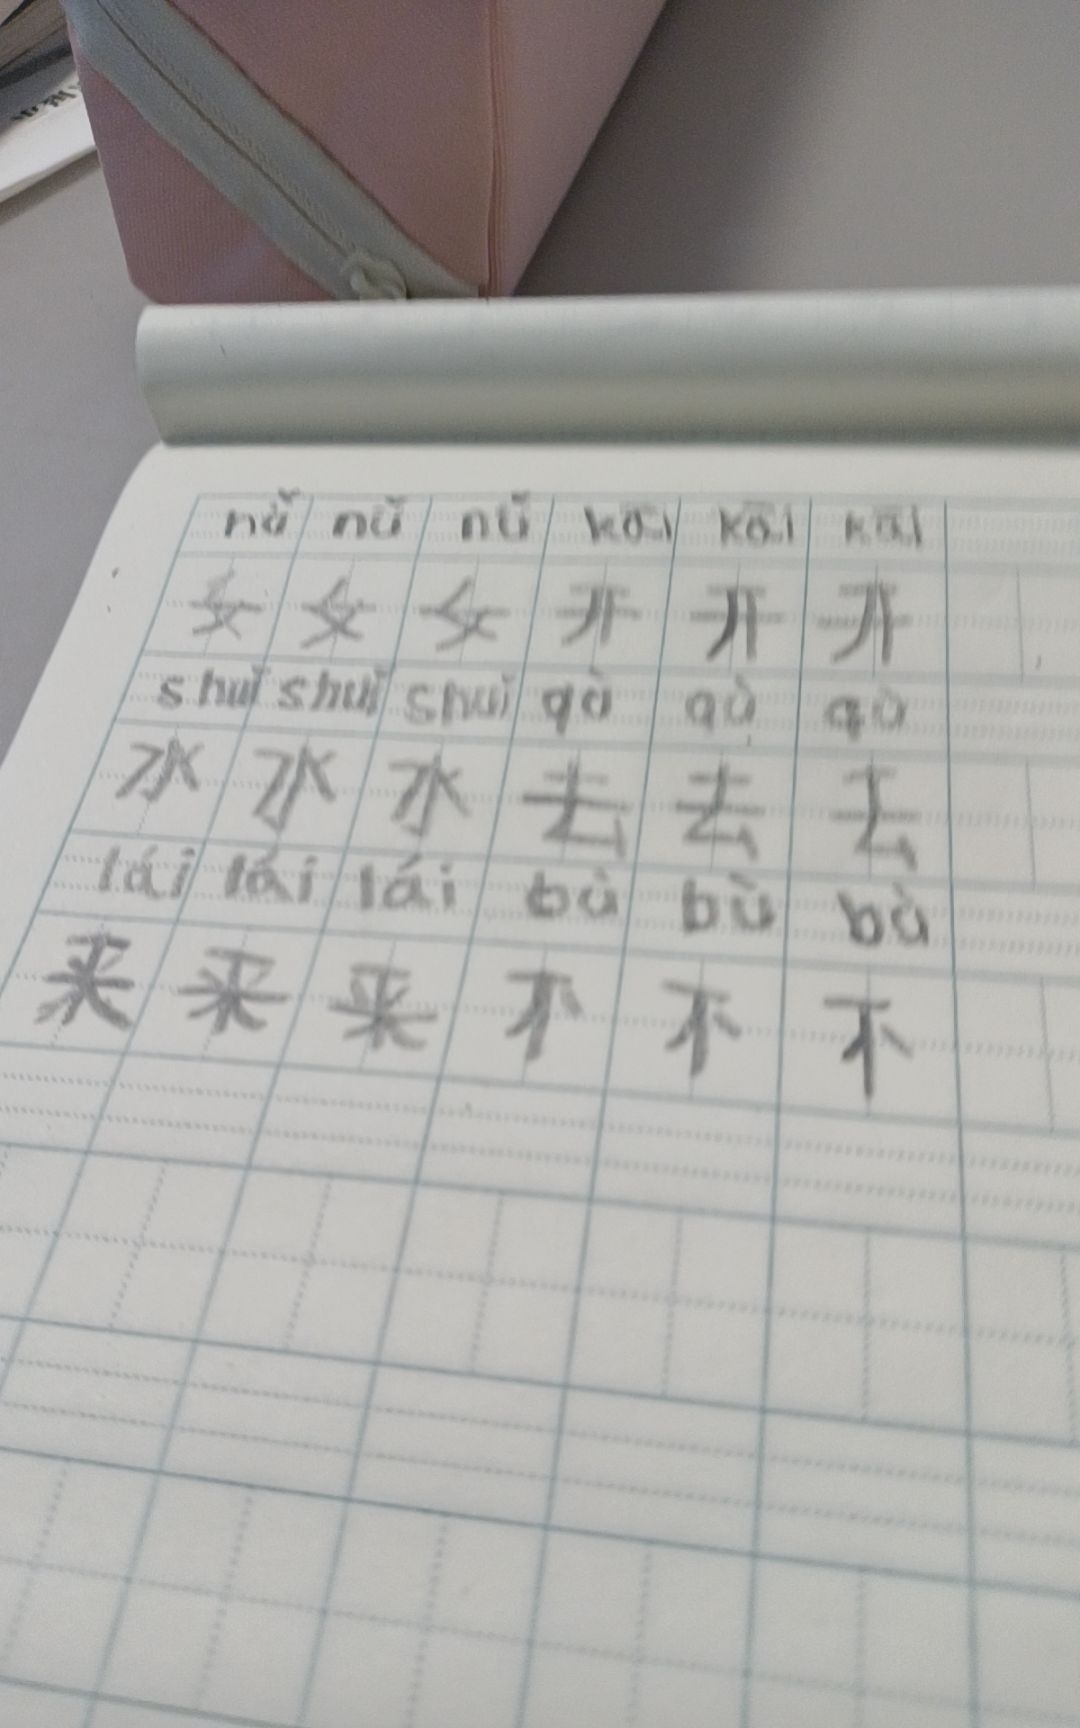 nǚ nǚ nǚ kāi kāi kāi
女 女 女 开 开 开
shuǐ shuǐ shuǐ qù qù qù
水 水 水 去 去 去
lái lái lái bù bù bù
来 来 来 不 不 不